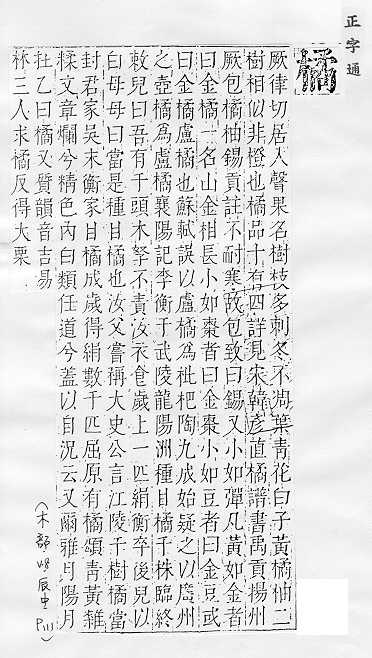 正字通
橘
厥律切居入聲果名樹枝多刺冬不凋葉青花白子黃橘柚二
樹相似非橙也橘品十有四詳見宋韓彥直橘譜書禹貢揚州
厥包橘柚錫貢註不耐寒故包致曰錫又小如彈丸黃如金者
曰金橘一名山金柑長小如棗者曰金棗小如豆者曰金豆或
曰金橘盧橘也蘇軾誤以盧橘為枇杷陶九成始疑之以廣州
之壺橘為盧橘襄陽記李衡于武陵龍陽洲種甘橘千株臨終
敕兒曰吾有千頭木孥不責汝衣食歲上一匹絹衡卒後兒以
白母母曰當是種甘橘也汝父嘗稱太史公言江陵千樹橘當
封君家吳末衡家甘橘成歲得絹數千匹屈原有橘頌青黃雜
糅文章爛兮精色內白類任道兮蓋以自況云又爾雅月陽月
在乙曰橘又質韻音吉易
林三人求橘反得大栗
(木部 明辰虫 P111)